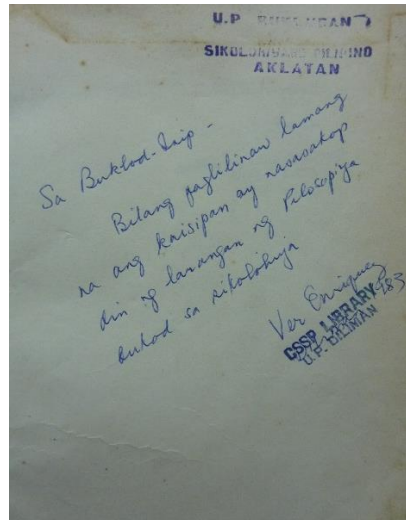 U.P BUKLURAN
SIKOLOHIYANG PILIPINO
AKLATAN
Sa Buklod-Isip -
Bilang paglilinaw lamang
na ang kaisipan ay nasasakop
din ng larangan ng Pilosopiya
bukod sa sikolohiya
Ver Enriquez
CSSP LIBRARY
U.P. DILIMAN
983